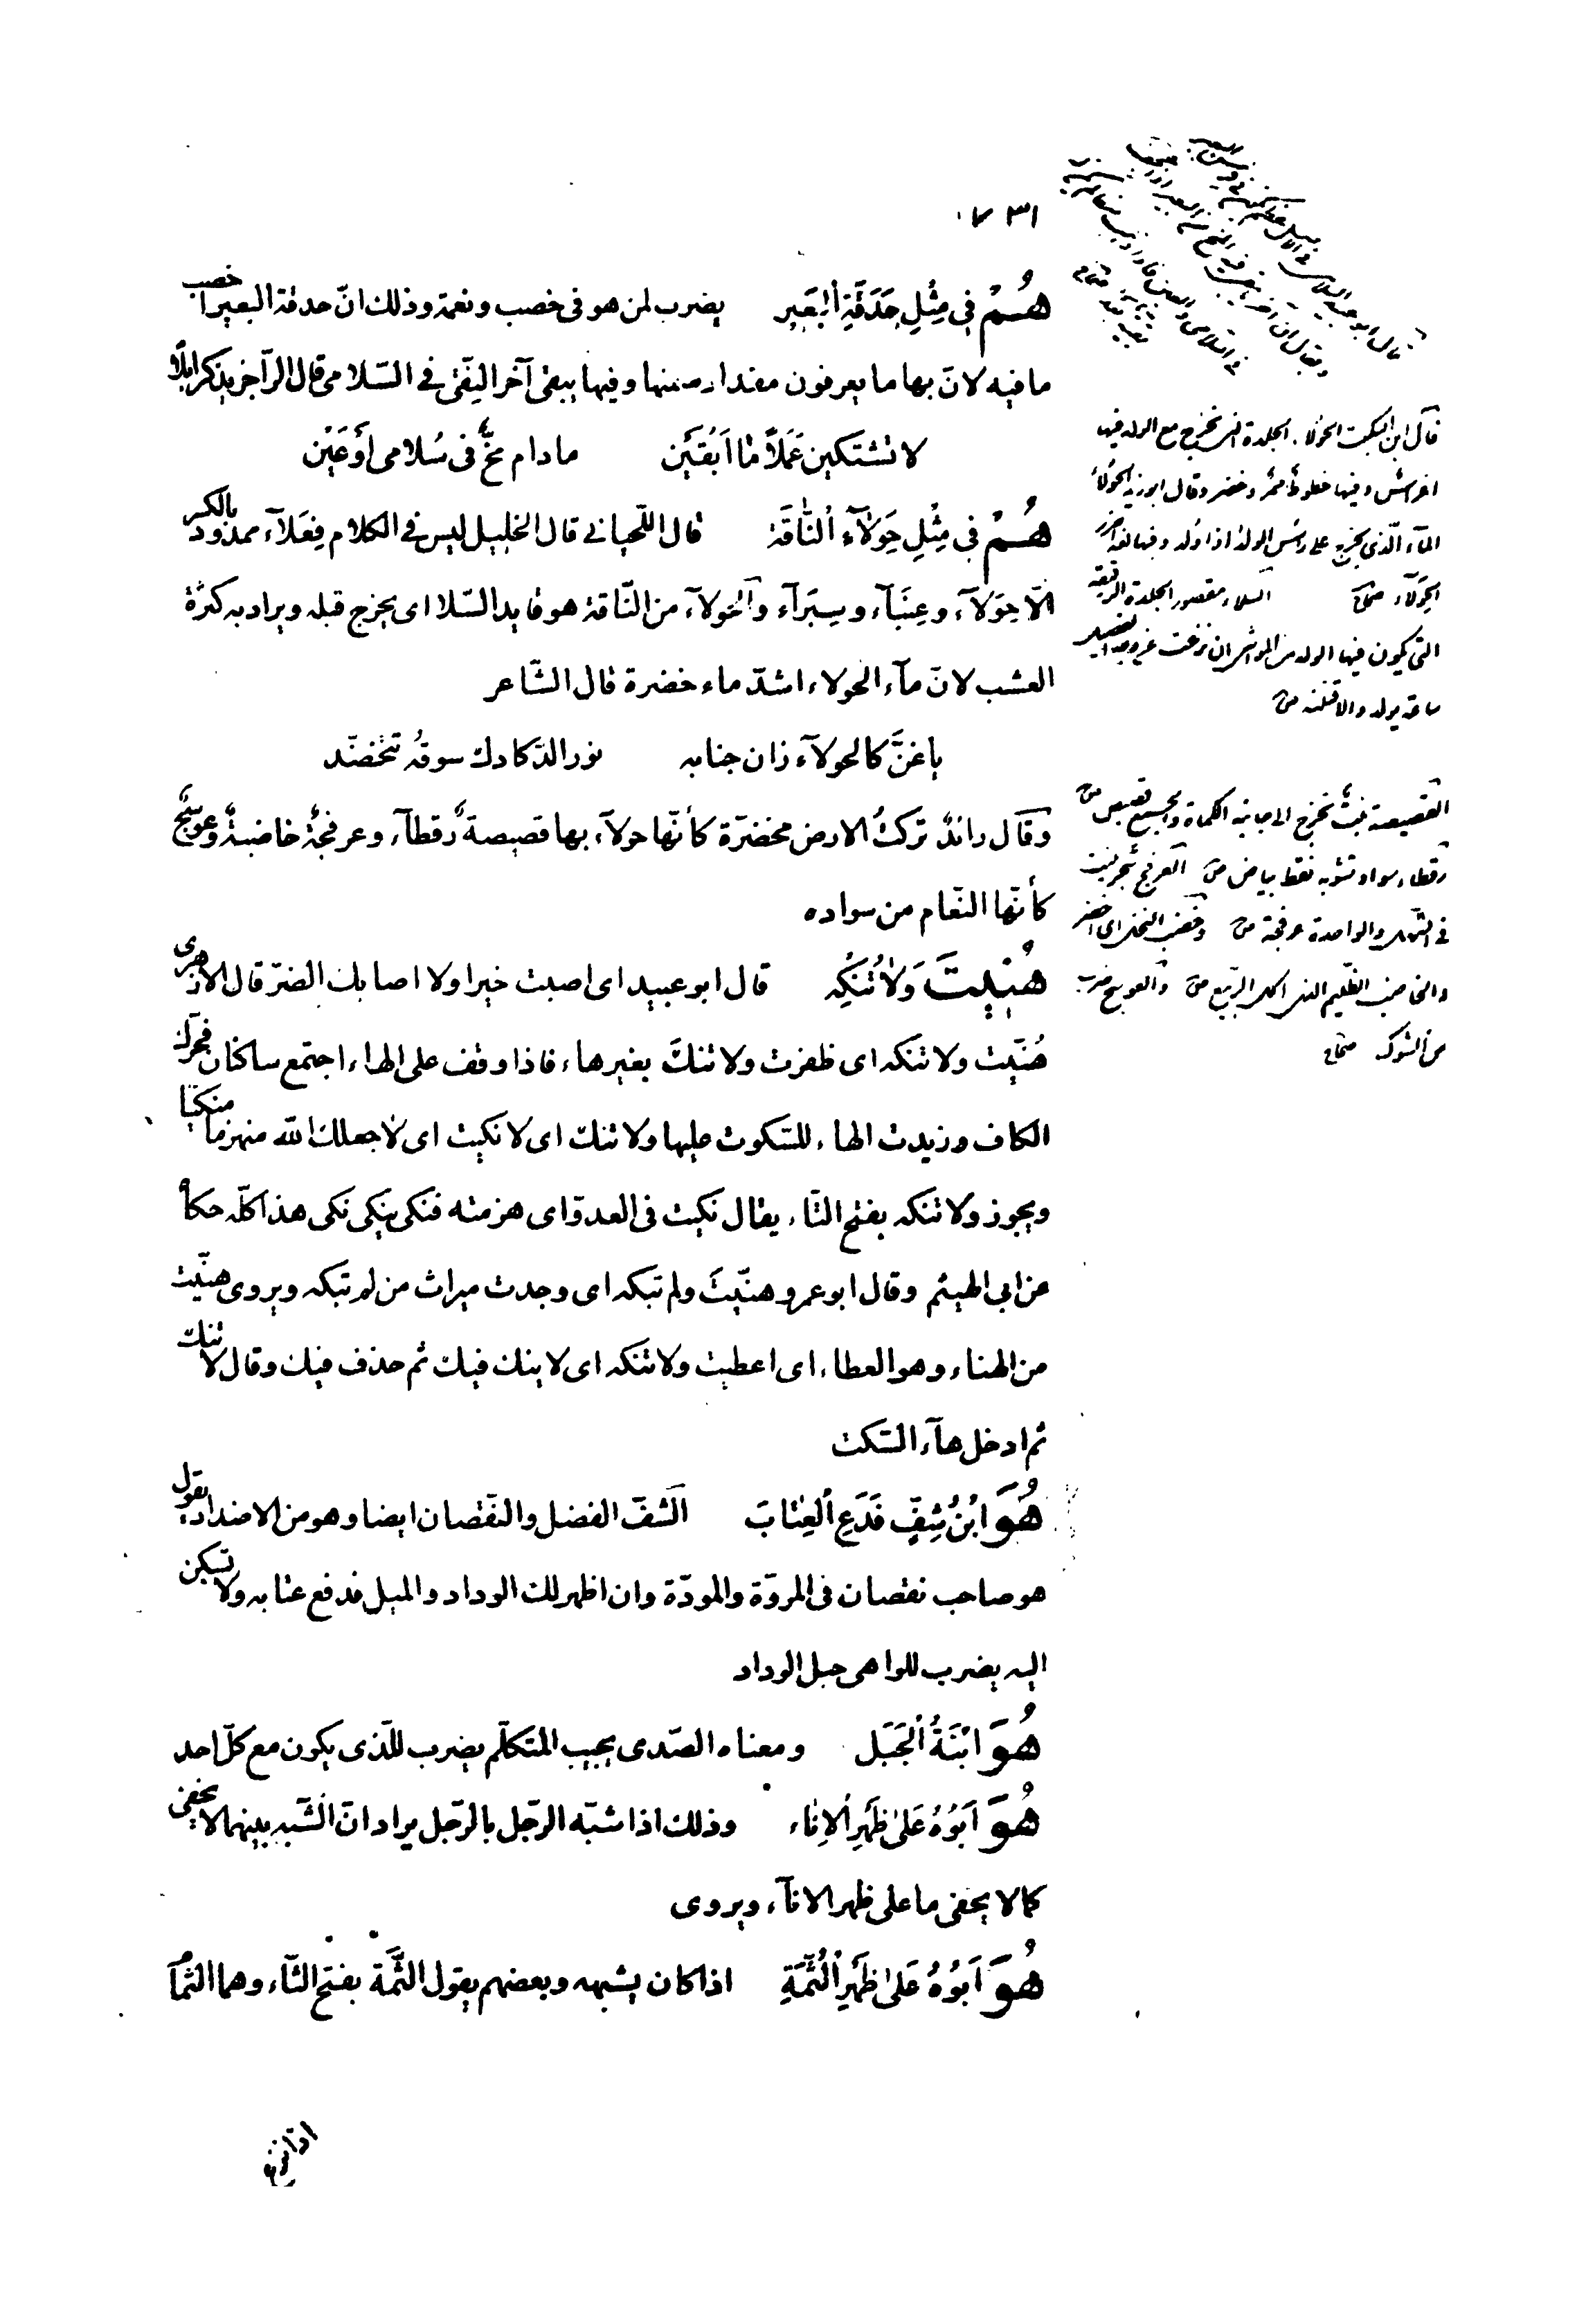 ٧٣١
هُمْ فِي مِثْلِ حَدَقَةِ ٱلْبَعِيرِ يضرب لمن هو فى خصب ونعمة وذلك انّ حدقة البعير اخصب
ما فيه لانّ بها ما يعرفون مقدار سمنها وفيها يبقى آخر النِقْى فى السّلامى قال الرّاجز يذكر ابلًا
لا تشتكين عَمَلًا مّا اَبْقَيْن مادام مخٌّ فى سُلامى أوْ عَيْن
هُمْ فِي مِثْلِ حِوَلَآءِ ٱلنَّاقَةِ قال اللّحيانى قال الخليل ليس فى الكلام فِعَلآء ممدود بالكسر
الّا حِوَلآء وعِنَبَآء وسِيَرَآء والحولآء من النّاقة هو قايد السّلا اى يخرج قبله ويراد به كثرة
العشب لانّ مآء الحولاء اشدّ ماء خضرة قال الشّاعر
باغنَّ كالحولآء زان جنابه نور الدّكادك سوقُه تتخضّد
وقال رائدٌ تركتُ الارض مخضرّة كأنّها حولآء بها قصيصةٌ رقطآء وعرفجةٌ خاضبةٌ وعوسجٌ
كأنّها النّعام من سواده
هُنِّيتَ وَلَا تُنْكَه قال ابو عبيد اى اصبت خيرا ولا اصابك الضرّ قال الازهرى
هُنّيت ولا تنكه اى ظفرت ولا تنكَ بغير هاء فاذا وقف على الهاء اجتمع ساكنان فحرّك
الكاف وزيدت الهاء للسّكوت عليها ولا تنك اى لا نكيت اى لا جعلك الله منهزما منكيا
ويجوز ولا تنكه بفتح التّاء يقال نكيت فى العدوّ اى هزمته فنكى ينكى نكى هذا كلّه حكاه
عن ابى الهيثم وقال ابو عمرو هنّيتَ ولم تبكه اى وجدت ميراث من لم تبكه ويروى هنّيت
من الهناء وهو العطاء اى اعطيت ولا تنكه اى لا ينك فيك ثم حذف فيك وقال لا تنك
ثم ادخل هآء السّكت
هُوَ ابْنُ شِفٍّ فَدَعِ ٱلْعِتَابَ الشّفّ الفضل والنّقصان ايضا وهو من الاضداد يقول
هو صاحب نقصان فى المروّة والمودّة وان اظهر لك الوداد والميل فدع عتابه ولا تسكن
اليه يضرب للواهى حبل الوداد
هُوَ ابْنَةُ ٱلْجَبَل ومعناه الصّدى يجيب المتكلّم يضرب للّذى يكون مع كلّ احد
هُوَ اَبُوهُ عَلَى ظَهْرِ ٱلْاِنَاءِ وذلك اذا شبّه الرّجل بالرّجل يراد انّ الشّبه بينهما لا يخفى
كما لا يخفى ما على ظهر الانآء ويروى
هُوَ اَبُوهُ عَلَى ظَهْرِ ٱلثُّمَّةِ اذا كان يشبهه وبعضهم يقول الثَّمَّة بفتح الثّآء وهما الثمام
قال ابن السكيت الحولاء الجلدة التى تخرج مع الولد فيها
اغراس وفيها خطوط حمر وخضر وقال ابو زيد الحولاء
المآء الّذى يخرج على رأس الولد اذا ولد وفيها لغة اخرى
الحِوَلآء صحاح السلاء مقصور الجلدة الرقيقة
التى يكون فيها الولد من المواشى ان نزعت عن وجه الفصيل
ساعة يولد والا قتلته ص
القصيصة نبت تخرج الى جانبه الكمأة والجمع قصيص ص
رقطاء سواد تشوبه نقط بياض ص العرفج شجر ينبت
فى السّهل والواحدة عرفجة ص وخضب النخل اى اخضر
والخاضب الظّليم الذى اكل الرّبيع ص والعوسج ضرب
من الشوك صحاح